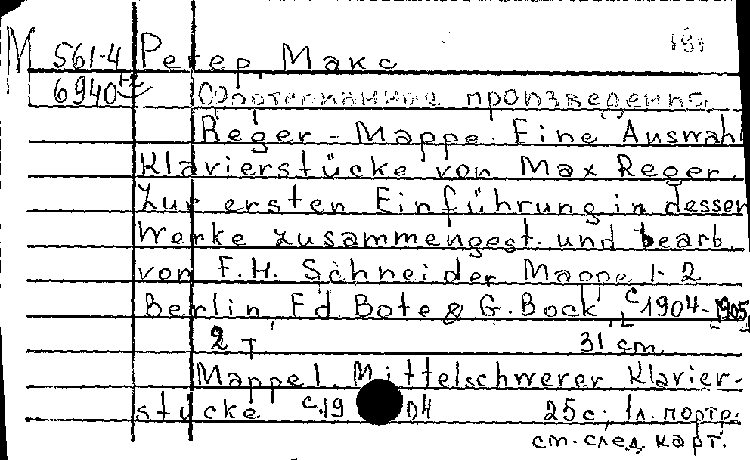 М 561-4 Регер, Макс 191
6940 Фортепианные произведения.
Reger-Mappe. Eine Auswahl
Klavierstücke von Max Reger.
Zur ersten Einführung in dessen
Werke zusammengest. und bearb.
von F.H. Schneider Mappe 1-2
Berlin, Ed Bote & G. Bock, c1904-1905
2 т. 31 cm.
Mappe 1. Mittelschwerer Klavier-
stücke c1904 25 с., 1 л. портр.
см. след. карт.